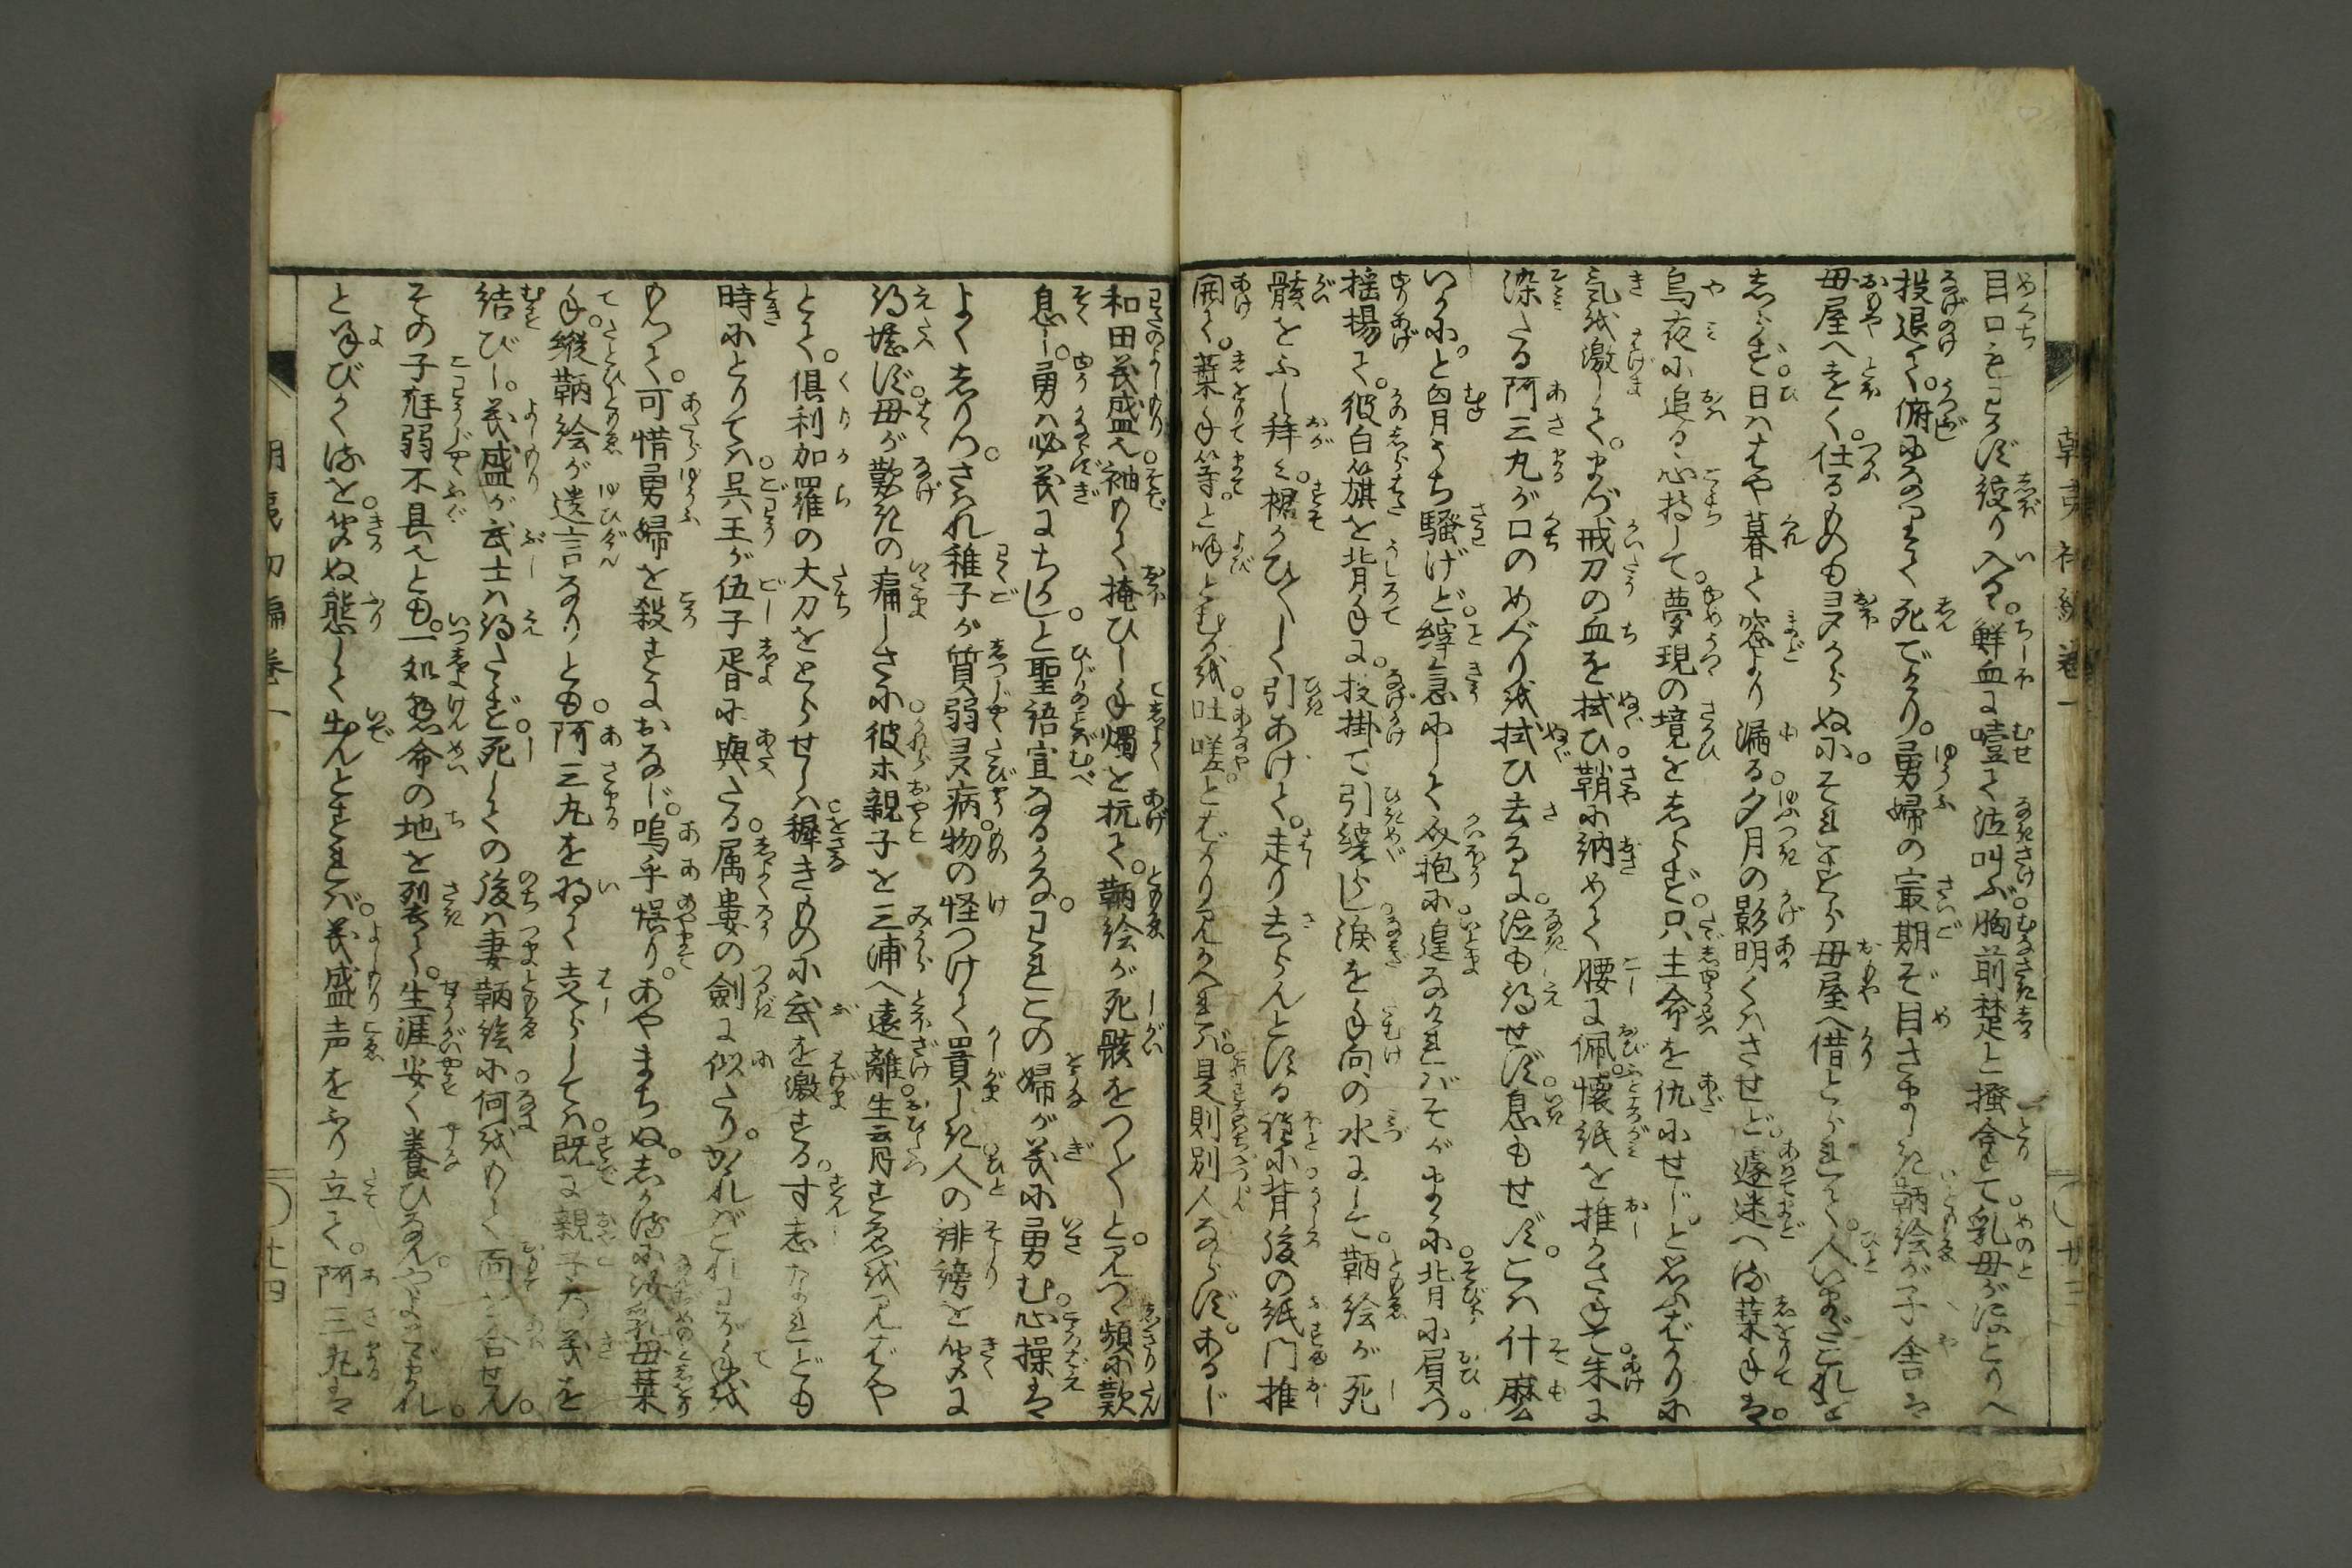 朝夷初編巻一
廿三
目口もわかず絞り入る。鮮血に噎て泣叫ぶ。胸前楚と掻拿て。乳母がほとりへ
投退て。俯になりて死でけり。勇婦の最期ぞ目さましき。鞆絵が子舎は
母屋へ遠く。仕るものも多からぬに。それすら母屋へ借とられて。人いまだこれを
しらず。日ははや暮て窓より漏る。夕月の影明くはさせど。遽迷へる葉手は。
烏夜に追るゝ心持して。夢現の境をしらず。只主命を仇にせじ。と思ふばかりに
気を激して。まづ戒刀の血を拭ひ。鞘に納めて腰に佩。懐紙を推かさねて。朱に
染たる阿三丸が口のめぐりを拭ひ去るに。泣も得せず。息もせず。こは什麼
いかに。と胸うち騒げど。縡急にして介抱に。遑なければそがまゝに。背に負つ。
揺揚て。彼白簱を背手に。投掛て引繞らし。涙を手向の水にして。鞆絵が死
骸をふし拝み。裾かひ〳〵しく引あげて。走り去らんとする程に。背後の紙門推
開て。葉手等。と呼とむるを。吐嗟。とばかり見かへれば。是則別人ならず。あるじ
和田義盛。袖もて掩ひし手燭を抗て。鞆絵が死骸をつく〴〵と。見つゝ頻に歎
息し。勇は必義にちかしと聖語宜なるかな。われこの婦が義に勇む。心操は
よくしりつ。されば稚子が質弱多病。物の怪つけて罵しき人の誹謗を聞に
得堪ず。母が歎きの痛しさに。彼等親子を三浦へ遠離。生育すゑを見ばや
とて。倶利加羅の大刀をとらせしは。稺きものに武を激する。寸志なれども
時にとりては。呉王が伍子胥に与たる。属婁の剣に似たり。かゝればこれわが手を
もつて。可惜勇婦を殺すにおなじ。嗚乎悞り。あやまちぬ。しかるに汝乳母葉
手。縦鞆絵が遺言なりとも。阿三丸を将て走らしては。既に親子の義を
結びし。義盛が武士は得たゝず。死しての後は妻鞆絵に何をもて面を合せん。
その子尩弱不具也とも。一処懸命の地を裂しく。生涯安く養ひなん。やよこゞまれ。
と呼びかくるを。聞ぬ態して出んとすれば。義盛声をふり立て。阿三丸は
朝夷初編巻一
廿四